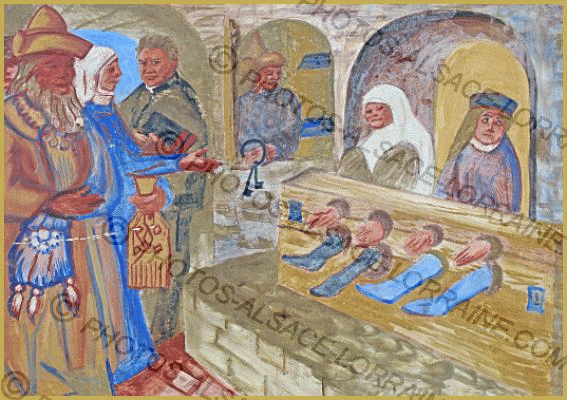 © PHOTOS-ALSACE-LORRAINE.COM
© PHOTOS-ALSACE-LORRAINE.COM
© PHOTOS-ALSACE-LORRAINE.COM